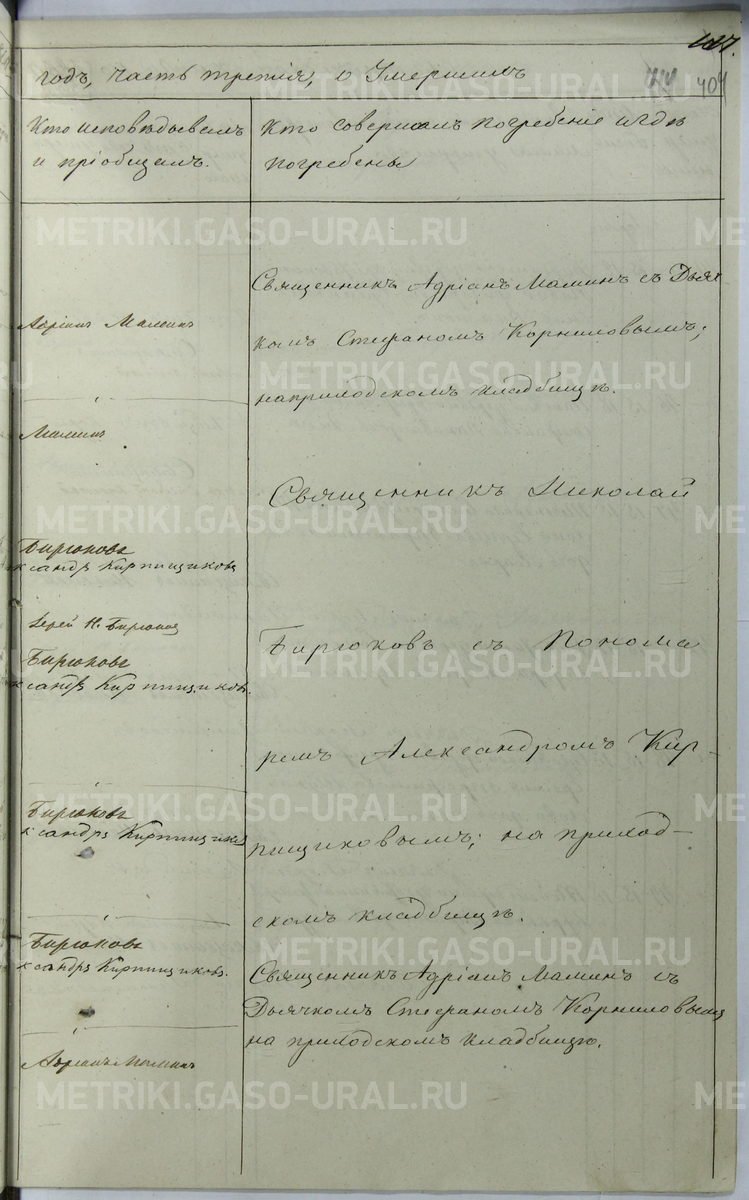 годъ, часть третія, о Умершихъ
404
Кто исповѣдывалъ
и пріобщалъ.
Кто совершалъ погребеніе и гдѣ
погребены
Священникъ Адріанъ Маминъ съ Дьяч
комъ Стефаномъ Корниловымъ;
на приходскомъ кладбищѣ.
Адріанъ Маминъ
Маминъ
Священникъ Николай
Бирюковъ съ Понома
ремъ Александромъ Кир-
пищиковымъ; на приход-
скомъ кладбищѣ.
Бирюковъ
ксандръ Кирпищиковъ
Іерей Н. Бирюковъ
Бирюковъ
ксандръ Кирпищиковъ.
Бирюковъ
ксандръ Кирпищиковъ
Бирюковъ
ксандръ Кирпищиковъ.
Священникъ Адріанъ Маминъ съ
Дьячкомъ Стефаномъ Корниловымъ
на приходскомъ кладбищѣ.
Адріанъ Маминъ
METRIKI.GASO-URAL.RU